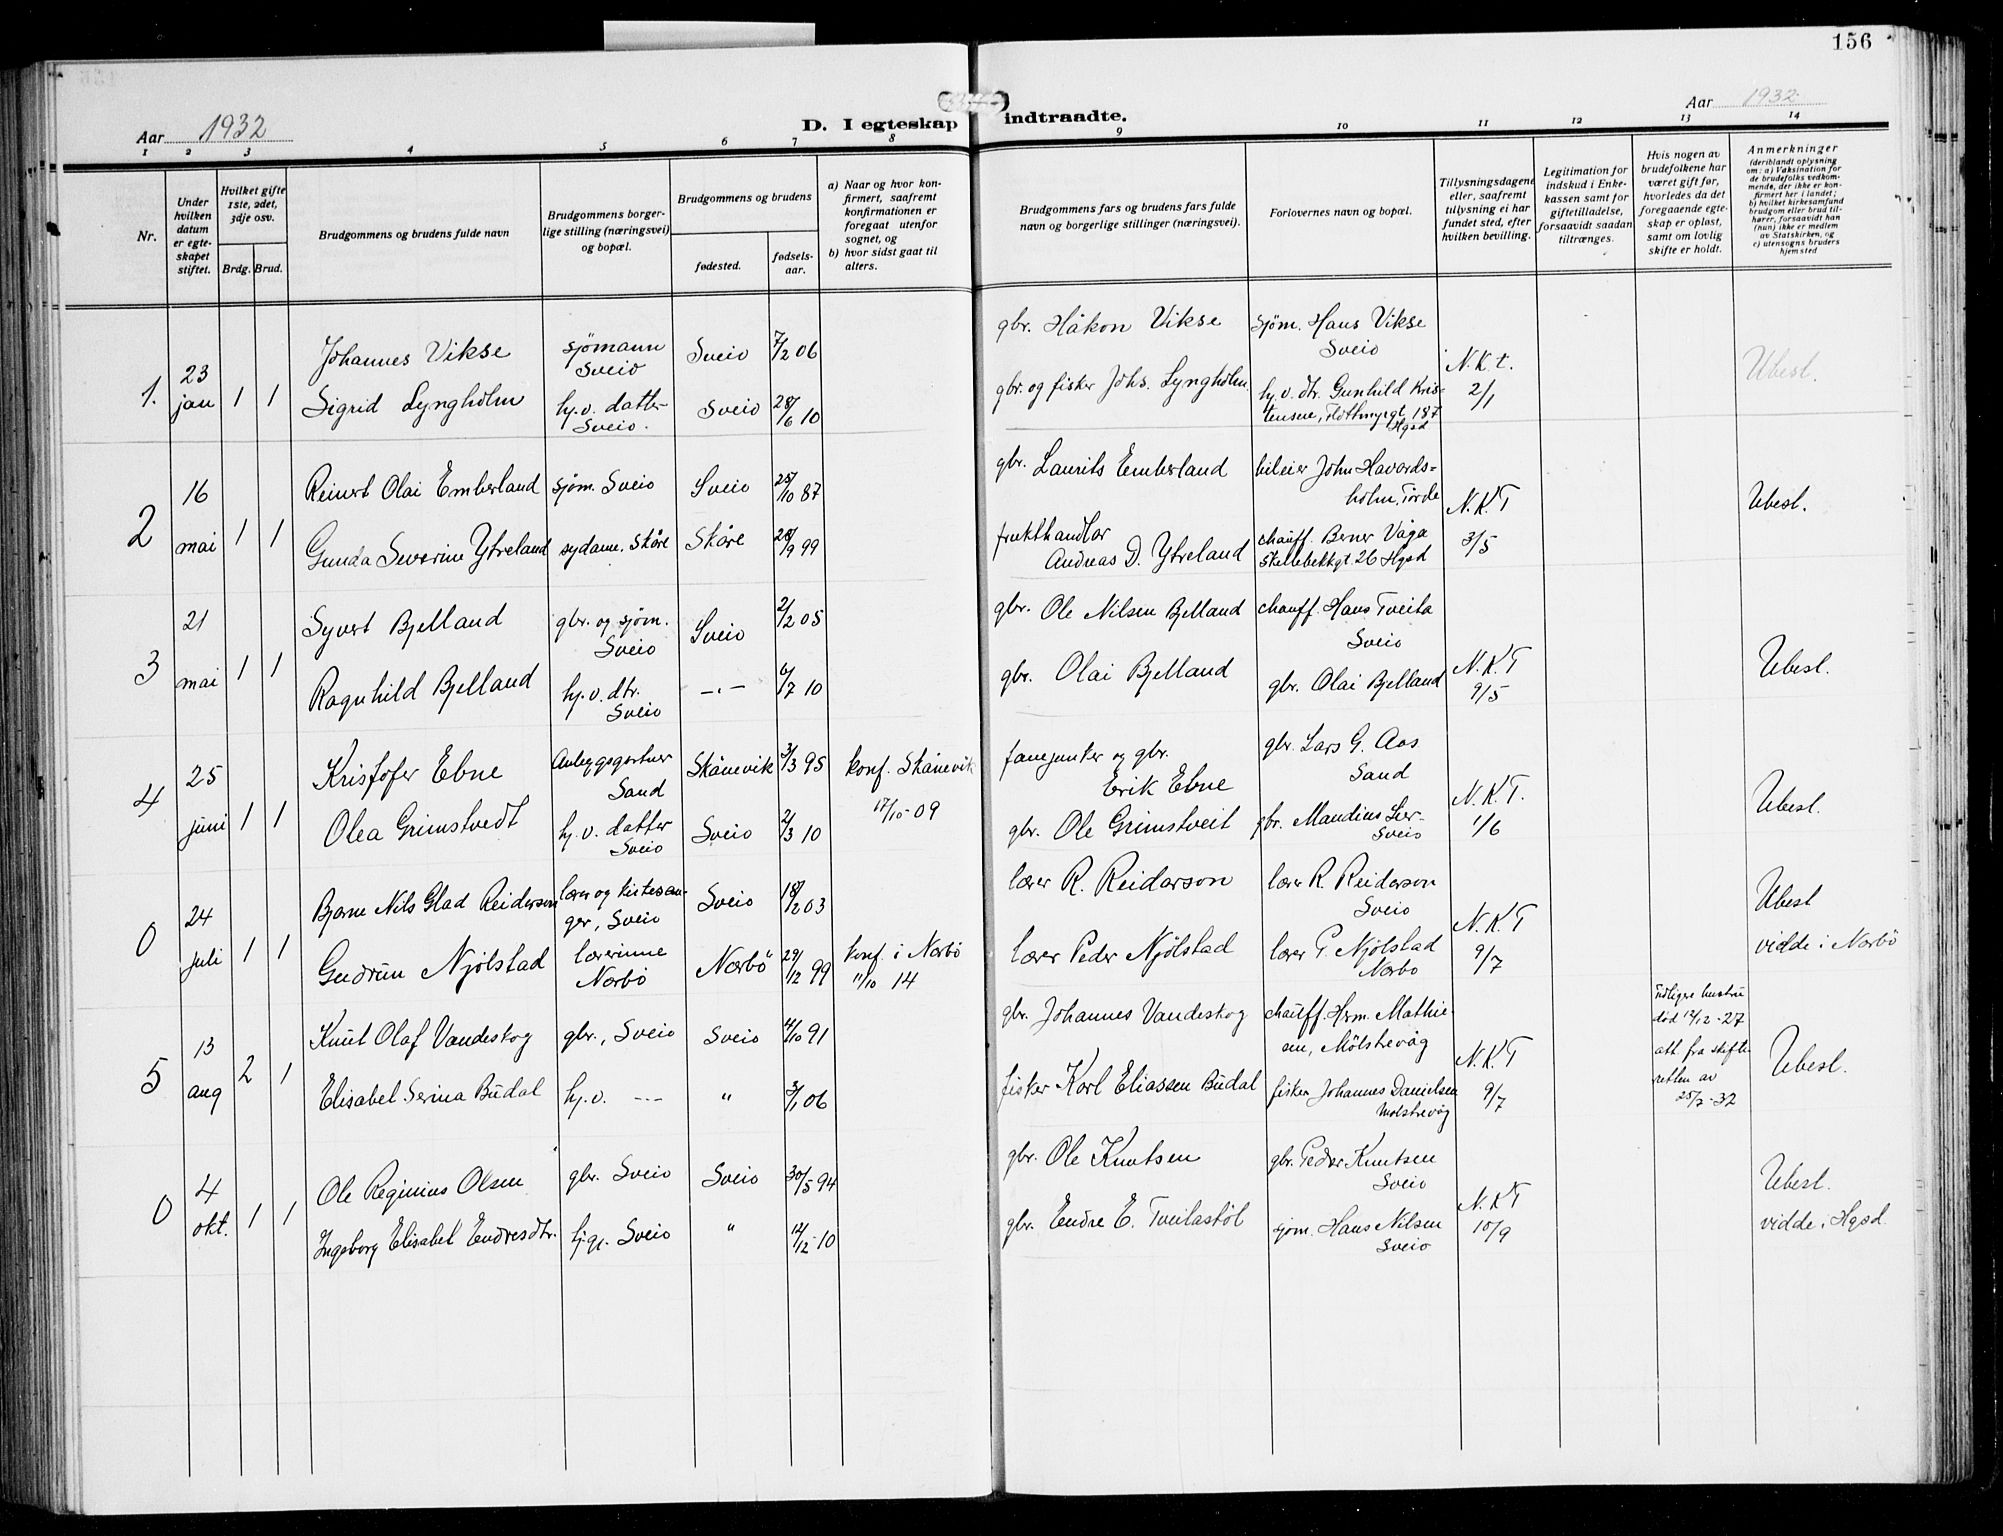 156
Aar 1932
D. I egteskap indtraadte.
Aar 1932
1 2 3 4 5 6 7 8 9 10 11 12 13 14
Nr.
Under hvilken datum er egteskapet stiftet.
Hvilket gifte 1ste, 2det, 3dje osv.
Brdg. Brud.
Brudgommens og brudens fulde navn
Brudgommens borgerlige stilling (næringsvei) og bopæl.
Brudgommens og brudens
fødested.
fødselsaar.
a) Naar og hvor konfirmert, saafremt konfirmationen er foregaat utenfor sognet, og
b) hvor sidst gaat til alters.
Brudgommens fars og brudens fars fulde navn og borgerlige stillinger (næringsvei).
Forlovernes navn og bopæl.
Tillysningsdagene eller, saafremt tillysning ei har fundet sted, efter hvilken bevilling.
Legitimation for indskud i Enkekassen samt for giftetilladelse, forsaavidt saadan tiltrænges.
Hvis nogen av brudefolkene har været gift før, hvorledes da det foregaaende egteskap er opløst, samt om lovlig skifte er holdt.
Anmerkninger
(deriblandt oplysning om: a) Vaksination for de brudefolks vedkommende, der ikke er konfirmert her i landet; b) hvilket kirkesamfund brudgom eller brud tilhører, forsaavidt han (hun) ikke er medlem av Statskirken, og c) utensogns bruders hjemsted
1. 23 jan 1 1
Johannes Vikse sjömann Sveio Sveio 7/2 06
gbr. Håkon Vikse sjöm. Hans Vikse Sveio
Sigrid Lyngholm hj.v. datter Sveio. Sveio 28/6 10
gbr. og fisker Johs. Lyngholm. hj.v. dtr. Gunhild Kristensene, Flotmyrgt. 187 Hgsd
N.K.t. 2/1 Ubesl.
2 16 mai 1 1
Reinert Olai Emberland sjøm. Sveio Sveio 25/10 87
gbr. Laurits Emberland bileier John Havordsholm, Förde
Gunda Severine Ytreland sydame. Skåre Skåre 28/9 99
frukthandlar Andreas D. Ytreland chauff. Berner Våga Skellebekkgt. 26 Hgsd
N.K.T 3/5 Ubesl.
3 21 mai 1 1
Syvert Bjelland gbr. og sjøm. Sveio Sveio 2/2 05
gbr. Ole Nilsen Bjelland chauff. Hans Tveita Sveio
Ragnhild Bjelland hj.v. dtr. Sveio -"- 6/7 10
gbr. Olai Bjelland gbr. Olai Bjelland
N.K.T 9/5 Ubesl.
4 25 juni 1 1
Kristofer Ebne Anleggsgartner Sand Skånevik 3/3 95 konf. Skånevik 17/10-09
fanejunker og gbr. Erik Ebne gbr. Lars G. Aas Sand
Olea Grimstvedt hj.v. datter Sveio Sveio 2/3 10
gbr. Ole Grimstveit gbr. Mandius Lier Sveio
N.K.T. 1/6 Ubesl.
0 24 juli 1 1
Bjarne Nils Glad Reiderson lærer og kistesanger, Sveio Sveio 18/2 03
lærer R. Reidarson lærer R. Reidarson Sveio
Gudrun Njölstad lærerinne Nærbö Nærbö 29/12 99 konf. i Nærbö 11/10 14
lærer Peder Njölstad lærer P. Njölstad Nærbo
N.K.T 9/7 Ubesl vidde i Nærbö
5 13 aug 2 1
Knut Olaf Vandeskog gbr., Sveio Sveio 4/10 91
gbr. Johannes Vandeskog chauff. Herm. Mathiesen, Mölstrevåg
Elisabet Serina Büdal hj.v. -"- " 3/1 06
fisker Karl Eliassen Büdal fisker Johannes Danielsen Molstrevåg
N.K.T 9/7 Tidligre hustru död 12/12-27 att. fra skifteretten av 25/7-32 Ubesl.
0 4 okt. 1 1
Ole Reginius Olsen gbr. Sveio Sveio 30/5 94
gbr. Ole Knutsen gbr. Peder Knutsen Sveio
Ingeborg Elisabet Endresdtr. hjgj. Sveio " 12/12-10
gbr. Endre E. Tveitastöl sjöm. Hans Nilsen Sveio
N.K.T 10/9 Ubesl. vidde i Hgsd.